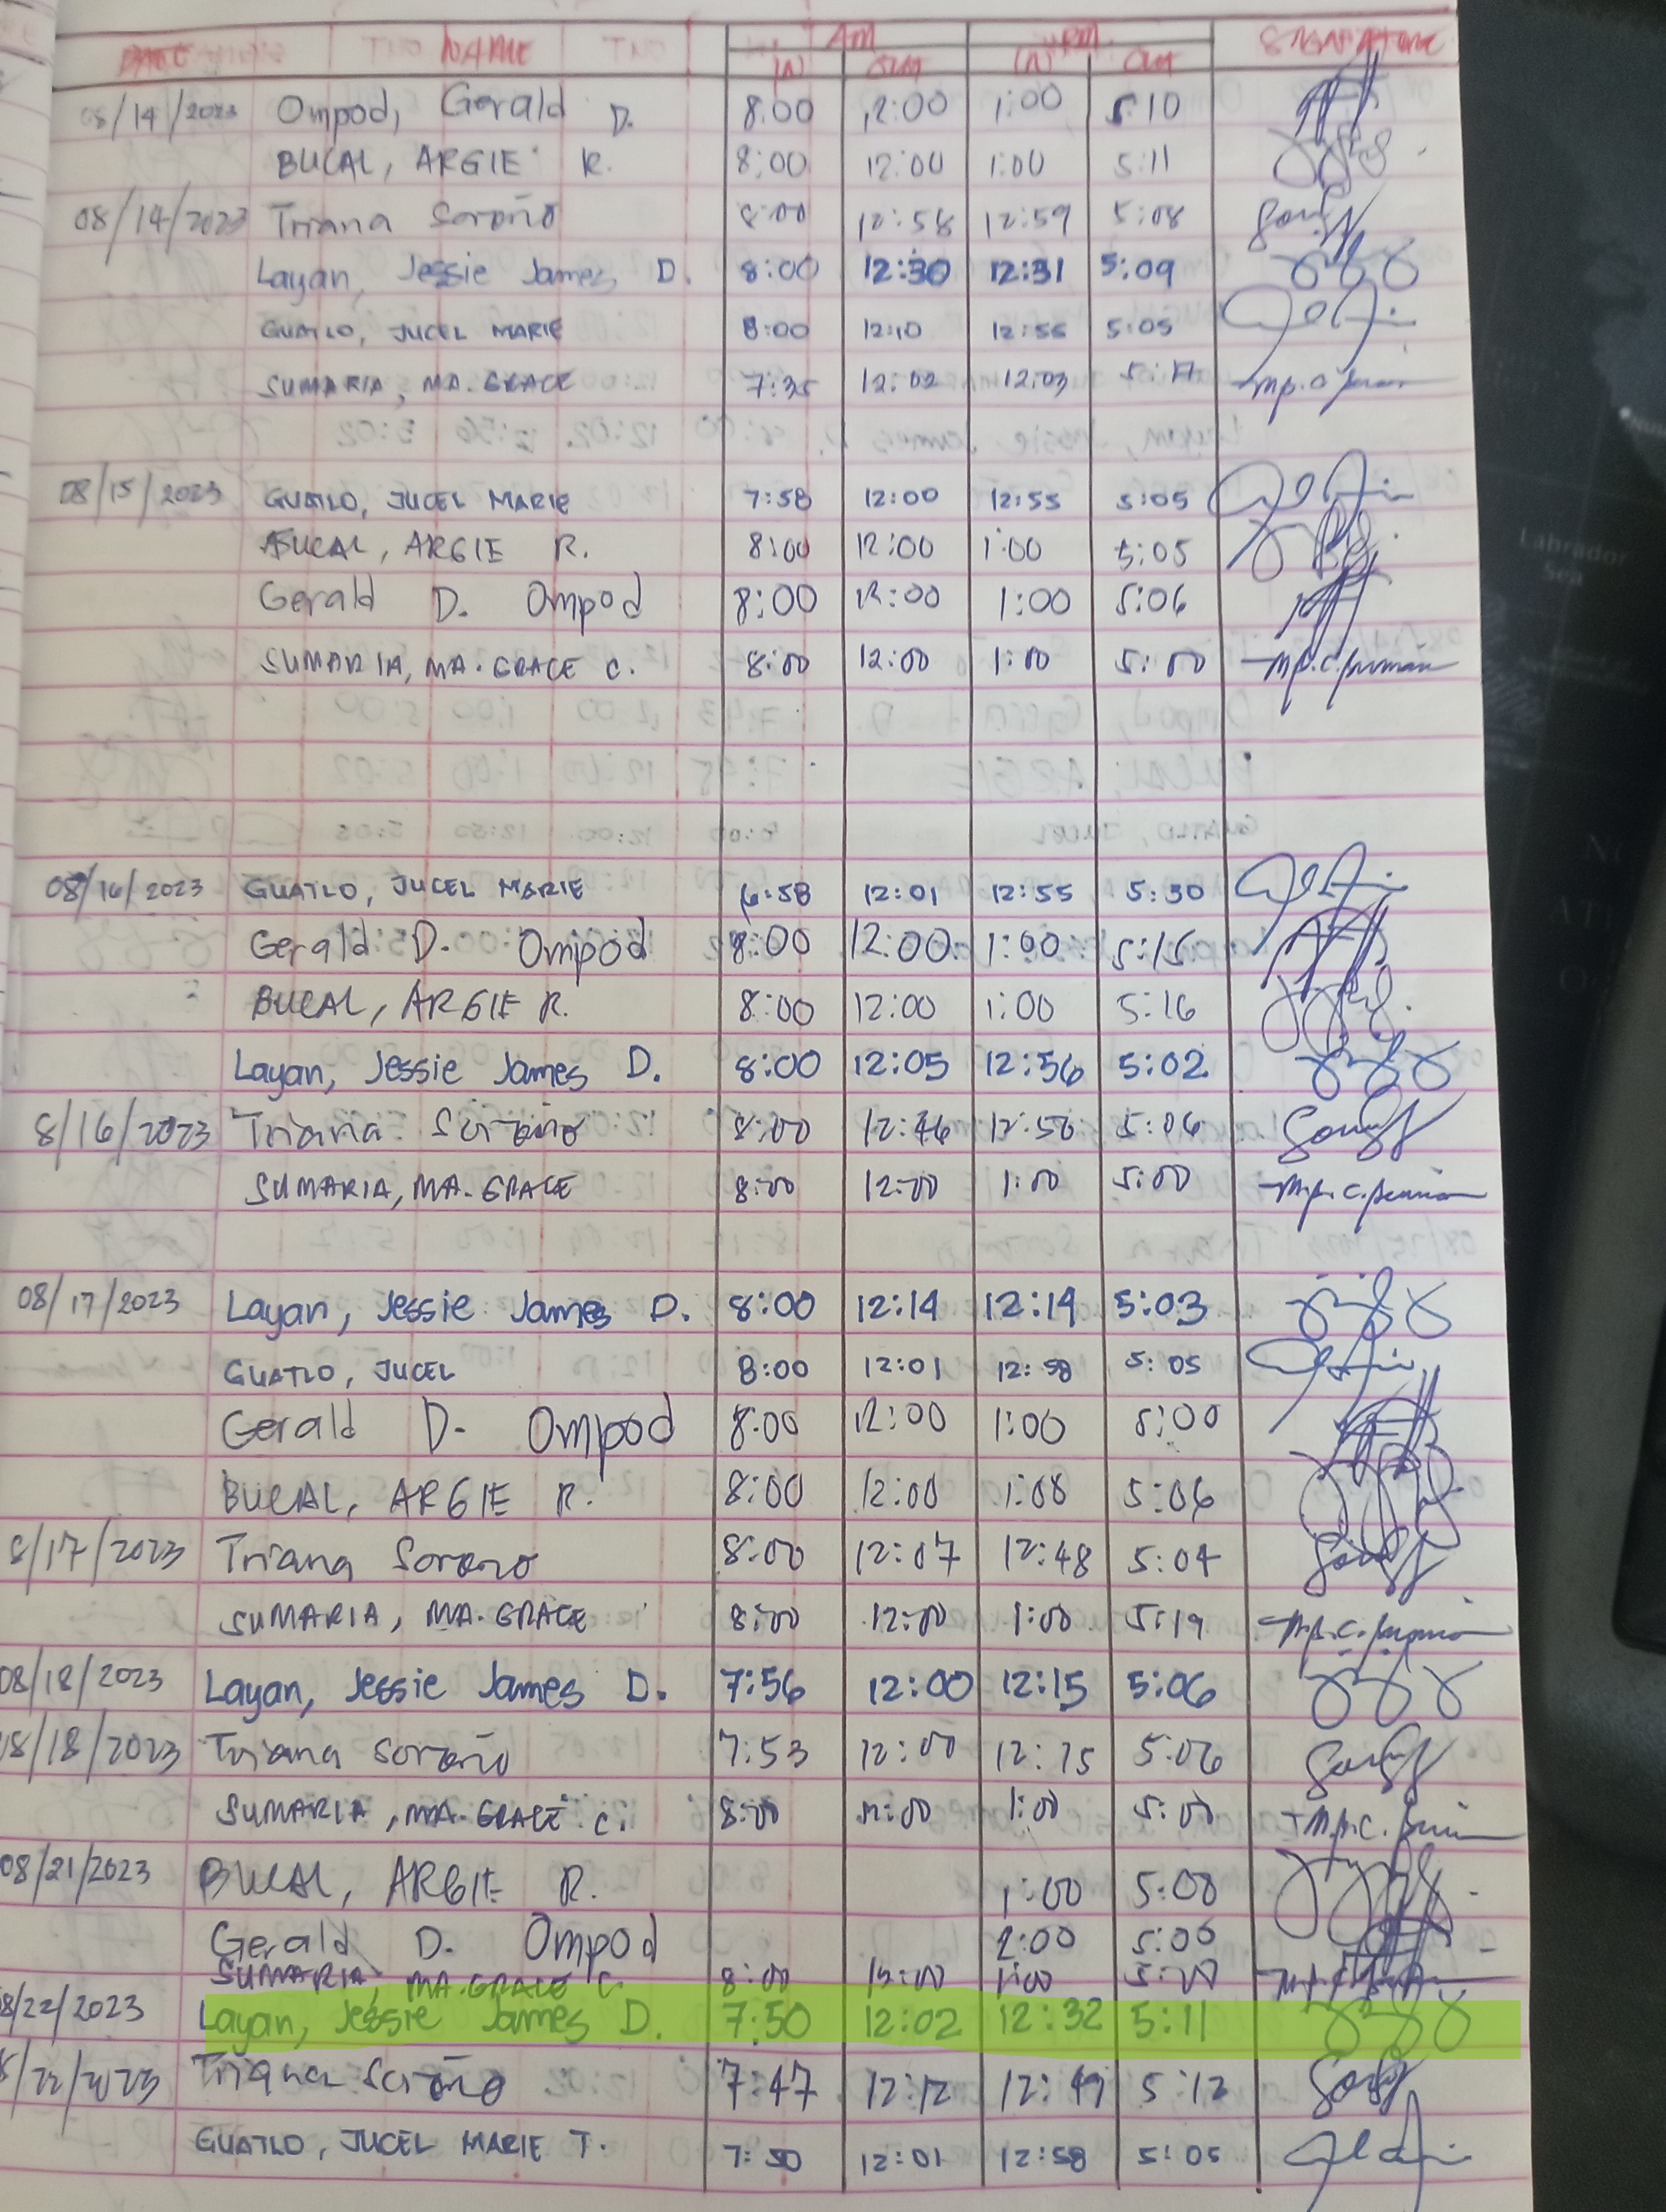 DATE NAME AM PM SIGNATURE
IN OUT IN OUT
08/14/2023 Ompod, Gerald D. 8:00 12:00 1:00 5:10
BUCAL, ARGIE R. 8:00 12:00 1:00 5:11
08/14/2023 Triana Soroño 8:00 12:58 12:59 5:08
Layan, Jessie James D. 8:00 12:30 12:31 5:09
GUATLO, JUCEL MARIE 8:00 12:10 12:55 5:05
SUMARIA, MA. GRACE 7:35 12:02 12:03 5:17
08/15/2023 GUATLO, JUCEL MARIE 7:58 12:00 12:55 5:05
BUCAL, ARGIE R. 8:00 12:00 1:00 5:05
Gerald D. Ompod 8:00 12:00 1:00 5:06
SUMARIA, MA. GRACE C. 8:00 12:00 1:00 5:00
08/16/2023 GUATLO, JUCEL MARIE 6:58 12:01 12:55 5:30
Gerald D. Ompod 8:00 12:00 1:00 5:15
BUCAL, ARGIE R. 8:00 12:00 1:00 5:16
Layan, Jessie James D. 8:00 12:05 12:56 5:02
8/16/2023 Triana Soroño 8:00 12:46 12:56 5:06
SUMARIA, MA. GRACE 8:00 12:00 1:00 5:00
08/17/2023 Layan, Jessie James D. 8:00 12:14 12:14 5:03
GUATLO, JUCEL 8:00 12:01 12:58 5:05
Gerald D. Ompod 8:00 12:00 1:00 5:00
BUCAL, ARGIE R. 8:00 12:00 1:08 5:06
8/17/2023 Triana Soroño 8:00 12:07 12:48 5:04
SUMARIA, MA. GRACE 8:00 12:00 1:00 5:19
08/18/2023 Layan, Jessie James D. 7:56 12:00 12:15 5:06
8/18/2023 Triana Soroño 7:53 12:00 12:15 5:06
SUMARIA, MA. GRACE C. 8:00 12:00 1:00 5:00
08/21/2023 BUCAL, ARGIE R. 1:00 5:00
Gerald D. Ompod 2:00 5:00
SUMARIA, MA. GRACE C. 8:00 12:00 1:00 5:00
8/22/2023 Layan, Jessie James D. 7:50 12:02 12:32 5:11
8/22/2023 Triana Soroño 7:47 12:12 12:49 5:12
GUATLO, JUCEL MARIE T. 7:50 12:01 12:58 5:05
Labrador
Sea